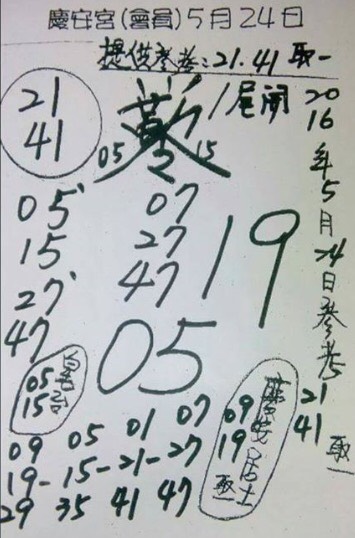 慶安宮(會員)5月24日
提供參考:21.41取一
21
41
1尾開
05 15
2016年5月24日參考
21
41
取
05
15
27
47
07
27
47
19
05
05
15
09 05 01 07
19-15-21-27
29 35 41 47
09
19
取
居士